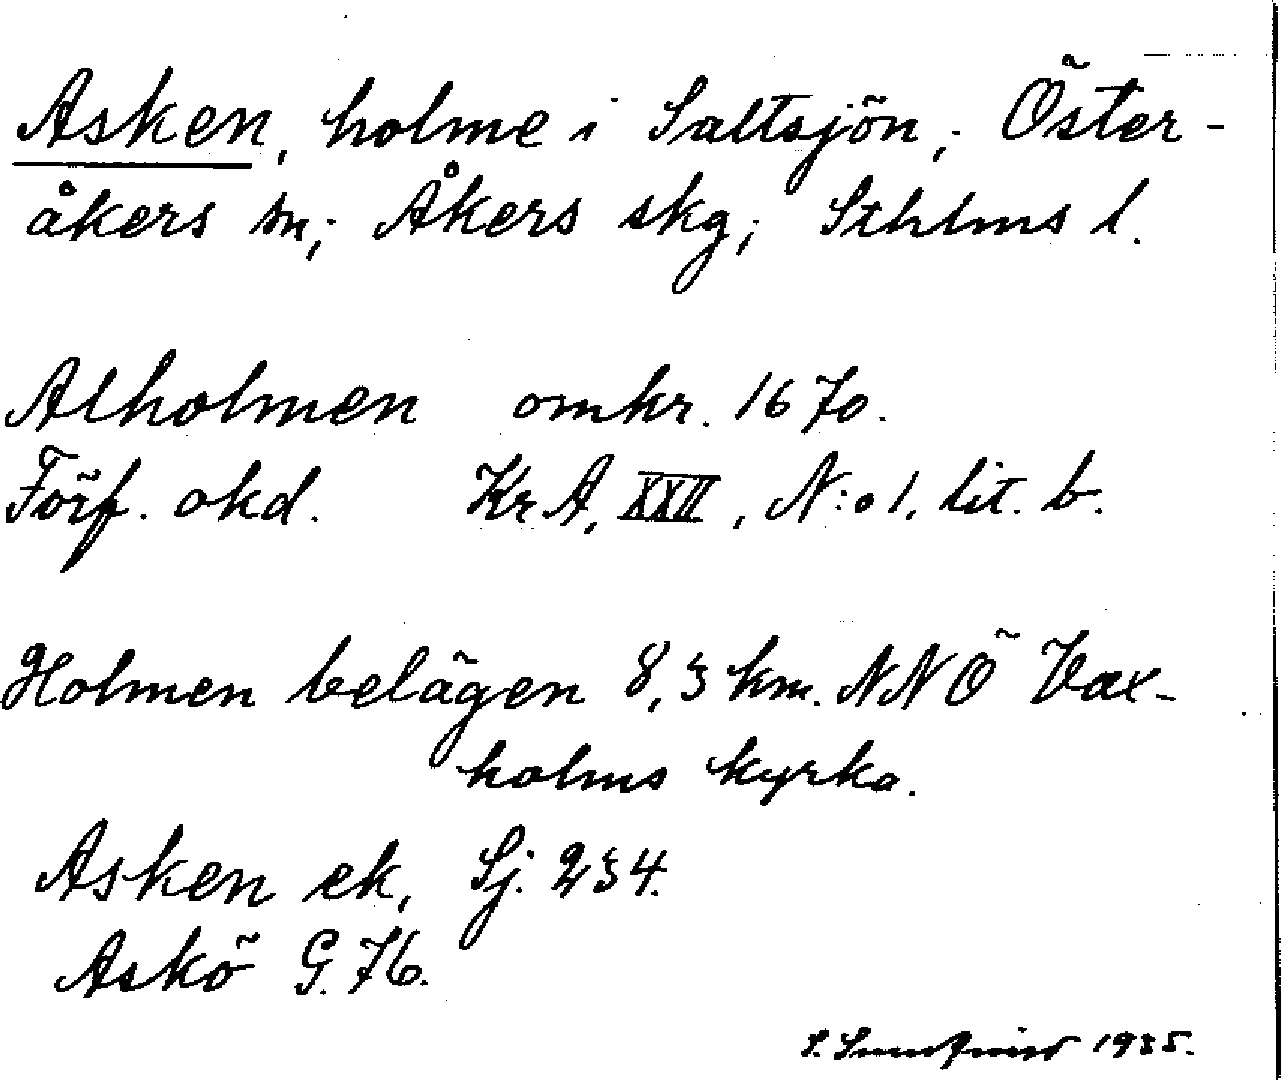 Asken, holme i Saltsjön; Öster-
åkers sn; Åkers skg; Sthlms l.
Alholmen omkr. 1670.
Förf. okd. Kr A, XXII, N:o 1, lit. b.
Holmen belägen 8,3 km. NNÖ Vax-
holms kyrka.
Asken ek, Sj. 234.
Askö G. 76.
S. Sundqvist 1935.